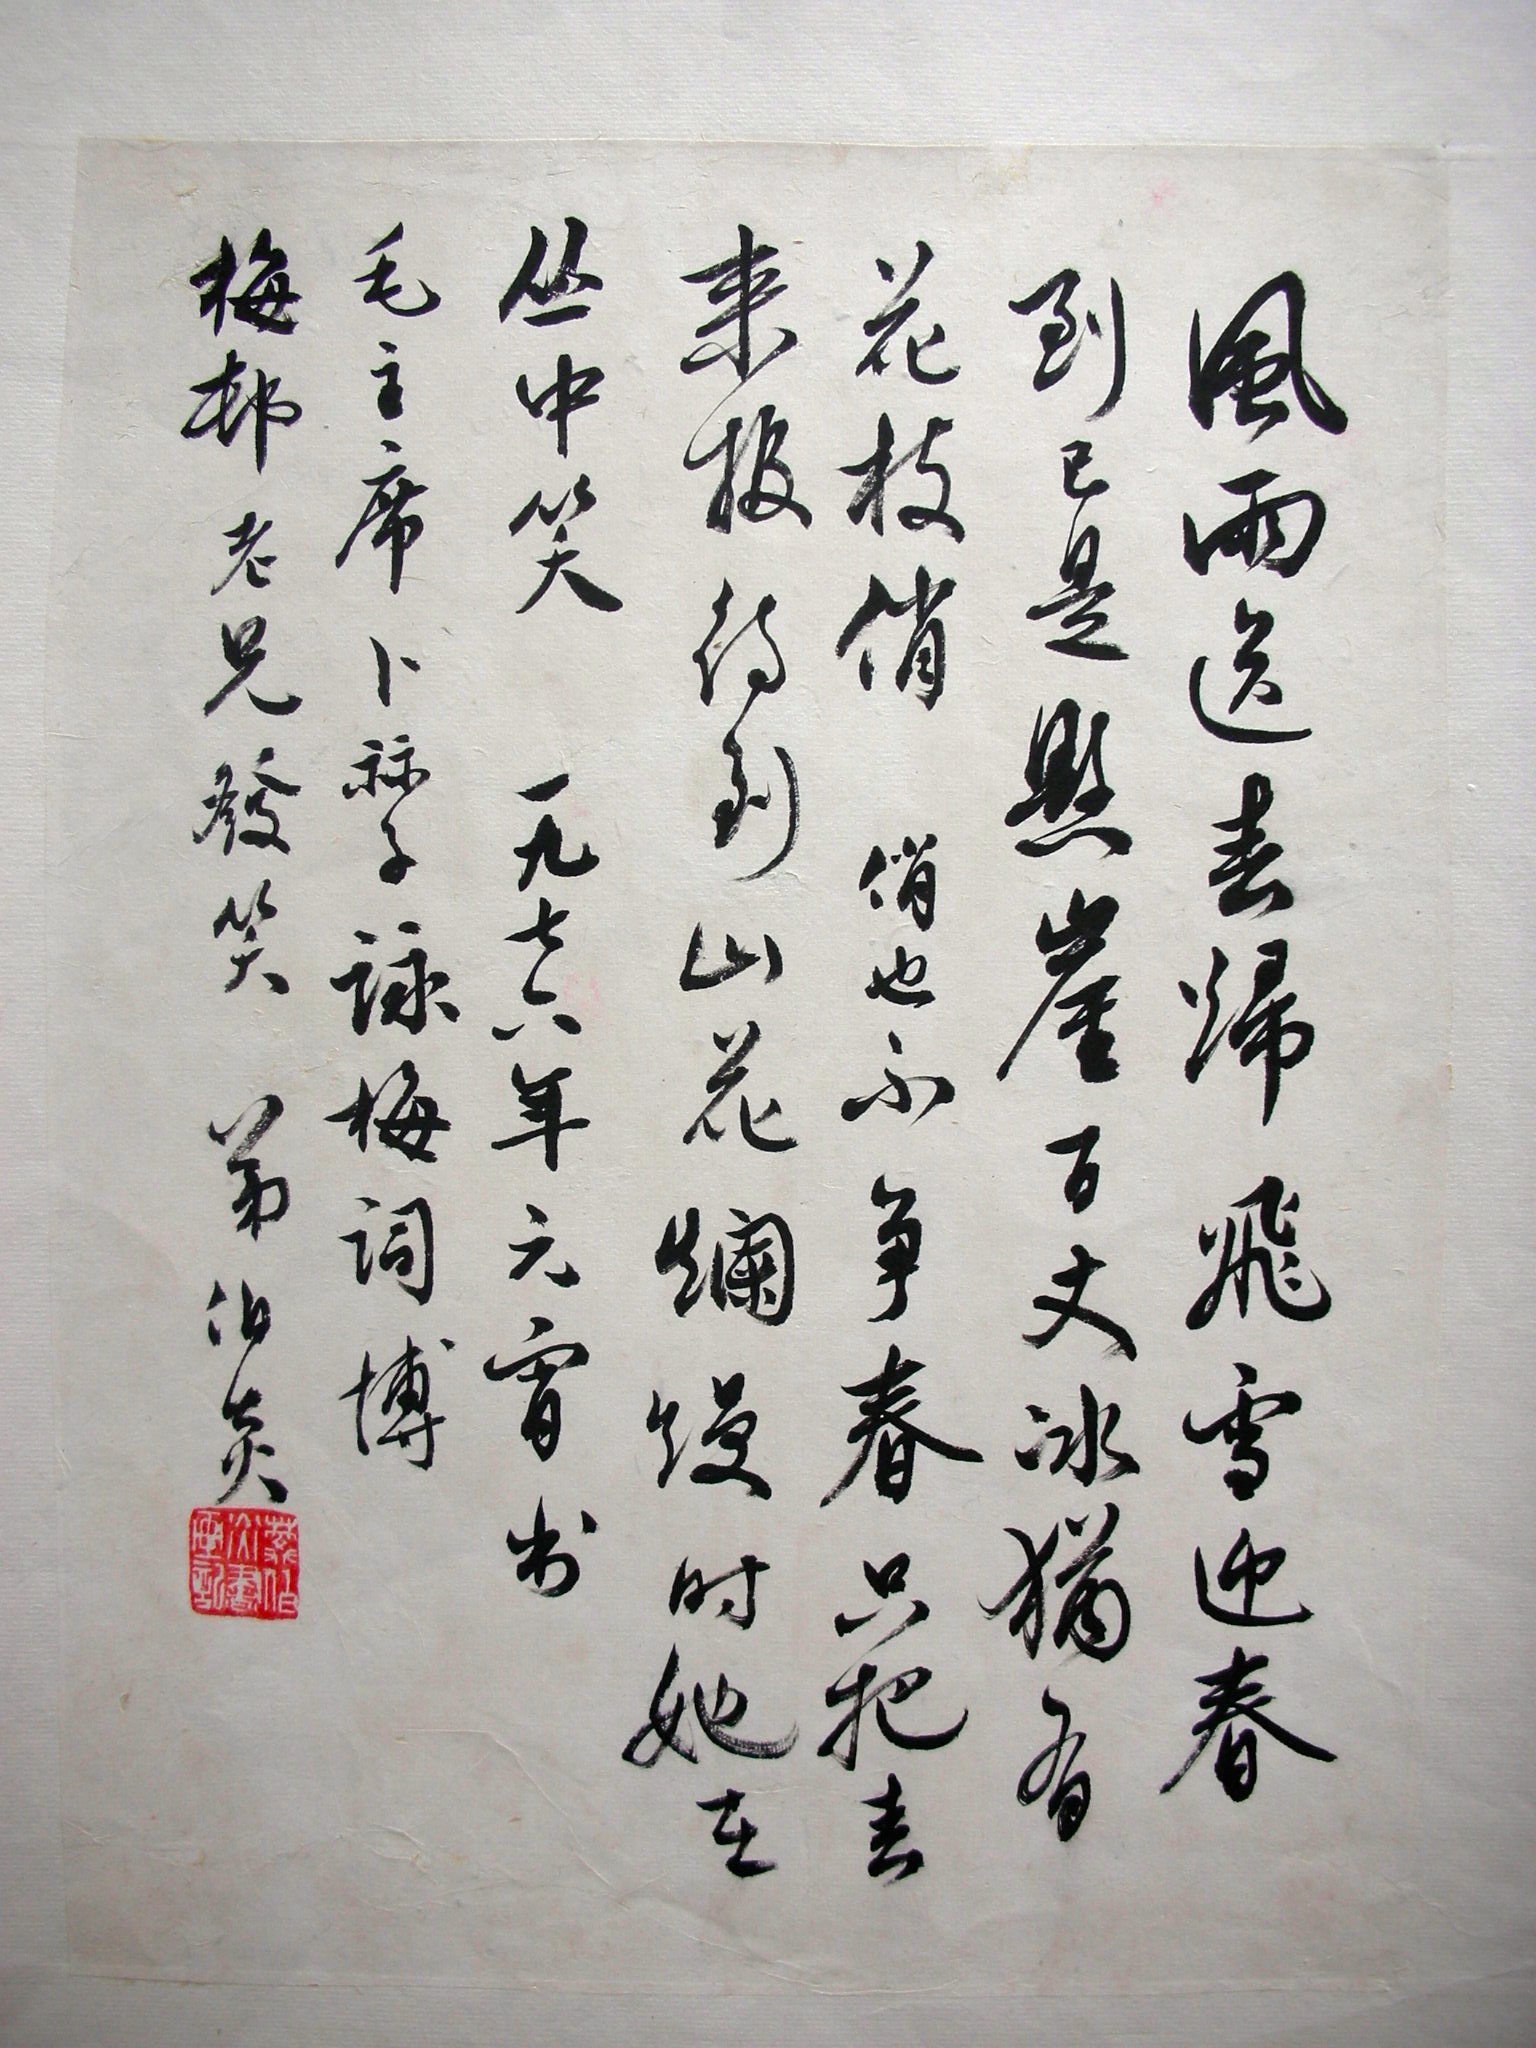 風雨送春歸飛雪迎春
到已是懸崖百丈冰猶有
花枝俏 俏也不争春只把春
来报待到山花爛熳时她在
丛中笑 一九七六年元宵书
毛主席卜祘子詠梅詞博
梅邨老兄發笑 弟伯炎